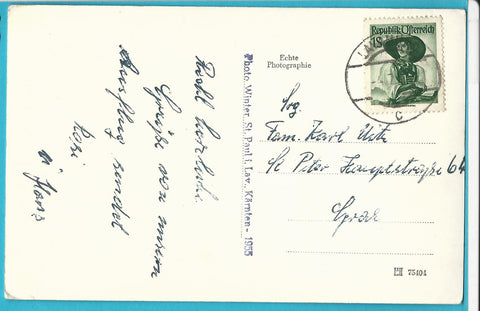 Recht herzliche
Grüße von unserem
Ausflug sendet
Rosi
u. Hans
Photo Winter, St. Paul i. Lav., Kärnten - 1955
Echte
Photographie
Republik Österreich
Fam. Karl
St. Peter Hauptstraße 64
Graz
75404